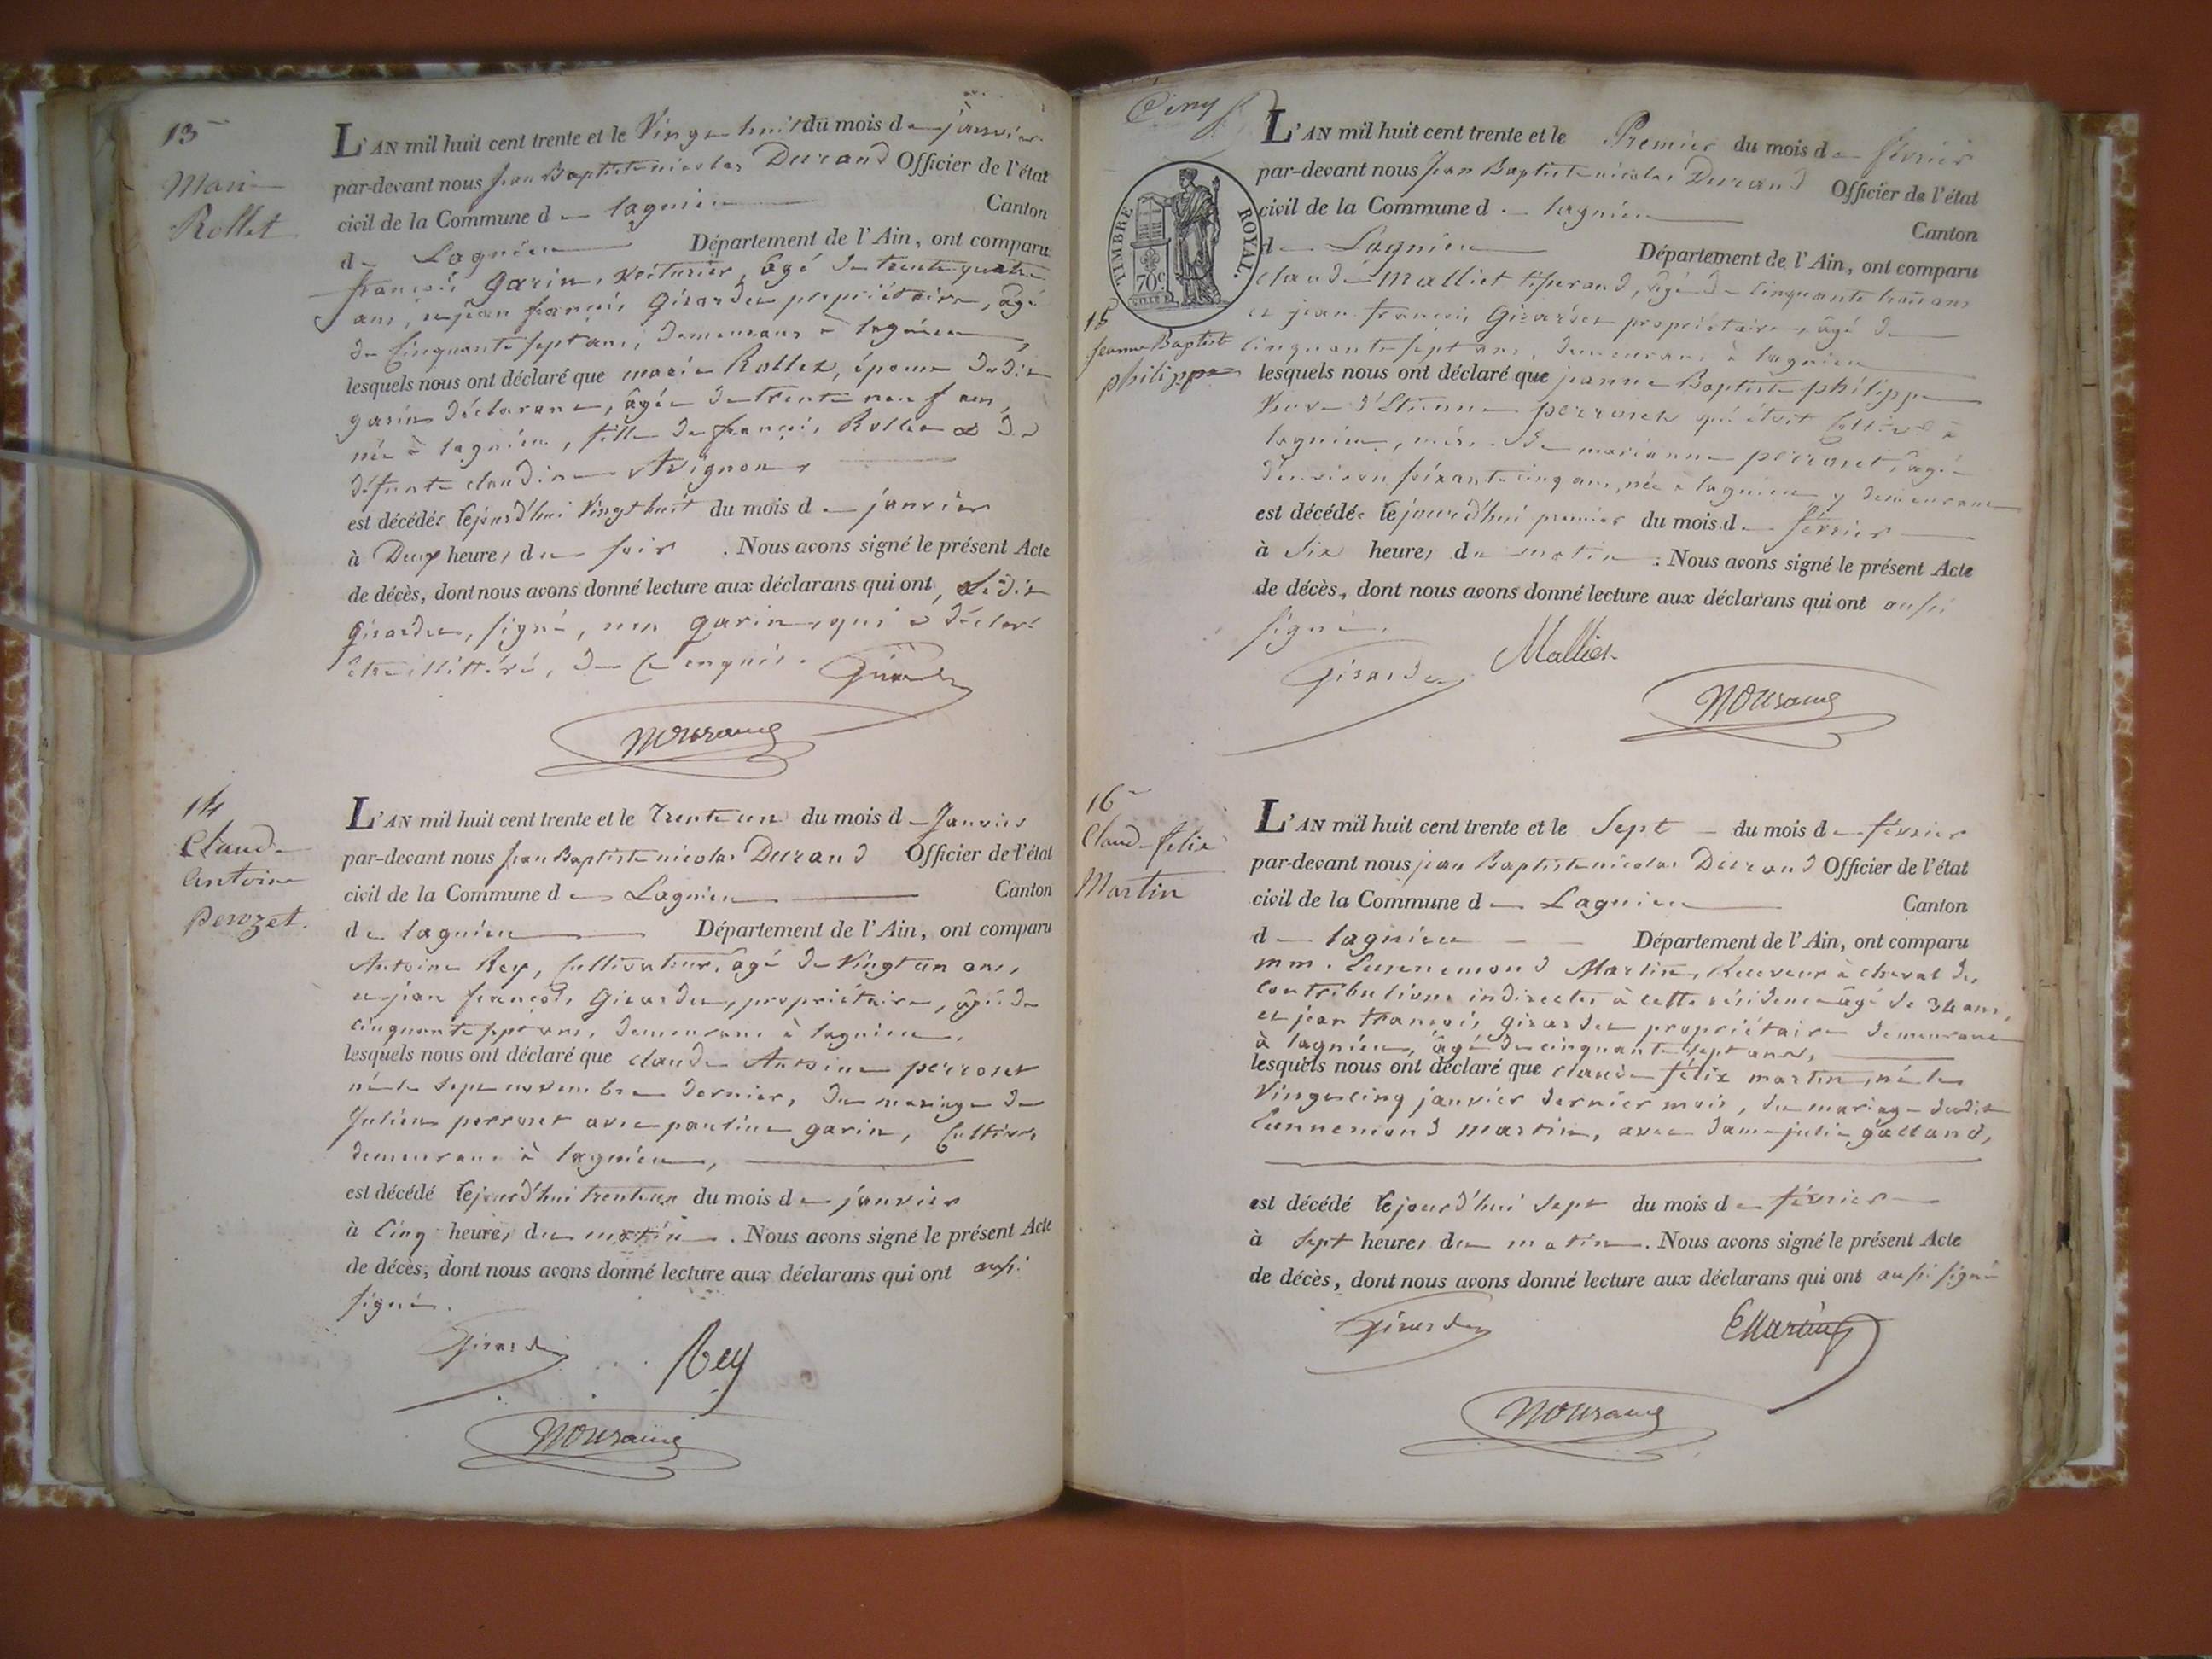 13
Marie
Rollet
L'AN mil huit cent trente et le Vingt huit du mois de janvier
par-devant nous Jean Baptiste nicolas Durand Officier de l'état
civil de la Commune de lagnieu Canton
de Lagnieu Département de l'Ain, ont comparu
françois Garin, Voiturier, âgé de trente quatre
ans, et jean françois Girardet propriétaire, âgé
de Cinquante sept ans, demeurans à lagnieu,
lesquels nous ont déclaré que marie Rollet, épouse dudit
garin déclarant, âgée de trente neuf ans,
née à lagnieu, fille de françois Rollet & de
défunte claudine Avignon,
est décédée lejourd'hui Vingt huit du mois de janvier
à Deux heures du soir. Nous avons signé le présent Acte
de décès, dont nous avons donné lecture aux déclarans qui ont, Ledit
Girardet, signé, non garin, qui a déclaré
être illittéré, de ce enquis. Girardet
NDurand
14
Claude
Antoine
Perozet.
L'AN mil huit cent trente et le Trente un du mois de Janvier
par-devant nous Jean Baptiste nicolas Durand Officier de l'état
civil de la Commune de Lagnieu Canton
de lagnieu Département de l'Ain, ont comparu
Antoine Rey, Cultivateur, âgé de Vingt un ans,
et jean françois Girardet, propriétaire, âgé de
cinquante sept ans, demeurans à lagnieu,
lesquels nous ont déclaré que claude Antoine perroset
né le sept novembre dernier, du mariage de
Julien perroset avec pauline garin, Cultivrs
demeurans à lagnieu,
est décédé lejourd'hui trente un du mois de janvier
à Cinq heures du matin. Nous avons signé le présent Acte
de décès, dont nous avons donné lecture aux déclarans qui ont aussi
signé.
Girardet Rey
NDurand
Cinq
TIMBRE ROYAL.
70c.
L'AN mil huit cent trente et le Premier du mois de février
par-devant nous Jean Baptiste nicolas Durand Officier de l'état
civil de la Commune de lagnieu Canton
de Lagnieu Département de l'Ain, ont comparu
Claude Malliet tisserand, âgé de Cinquante trois ans
15
Jeanne Baptiste
philippe
et jean françois Girardet propriétaire, âgé de
cinquante sept ans, demeurans à lagnieu
lesquels nous ont déclaré que jeanne Baptiste philippe
Veuve d'Etienne perroset qui étoit Cultivr à
lagnieu, mère de marianne perroset, âgée
d'environ soixante cinq ans, née à lagnieu y demeurant
est décédée lejourd'hui premier du mois de février
à Six heures du matin. Nous avons signé le présent Acte
de décès, dont nous avons donné lecture aux déclarans qui ont aussi
signé.
Girardet Malliet
NDurand
16
Claude félix
Martin
L'AN mil huit cent trente et le Sept du mois de février
par-devant nous jean Baptiste nicolas Durand Officier de l'état
civil de la Commune de Lagnieu Canton
de lagnieu Département de l'Ain, ont comparu
mm. Ennemond Martin, Receveur à cheval des
Contributions indirectes à cette résidence âgé de 34 ans,
et jean françois girardet propriétaire demeurant
à lagnieu, âgé de cinquante sept ans,
lesquels nous ont déclaré que claude félix martin, né le
Vingt cinq janvier dernier mois, du mariage dudit
Ennemond martin, avec dame julie galland,
est décédé lejourd'hui sept du mois de février
à sept heures du matin. Nous avons signé le présent Acte
de décès, dont nous avons donné lecture aux déclarans qui ont aussi signé
Girardet EMartin
NDurand